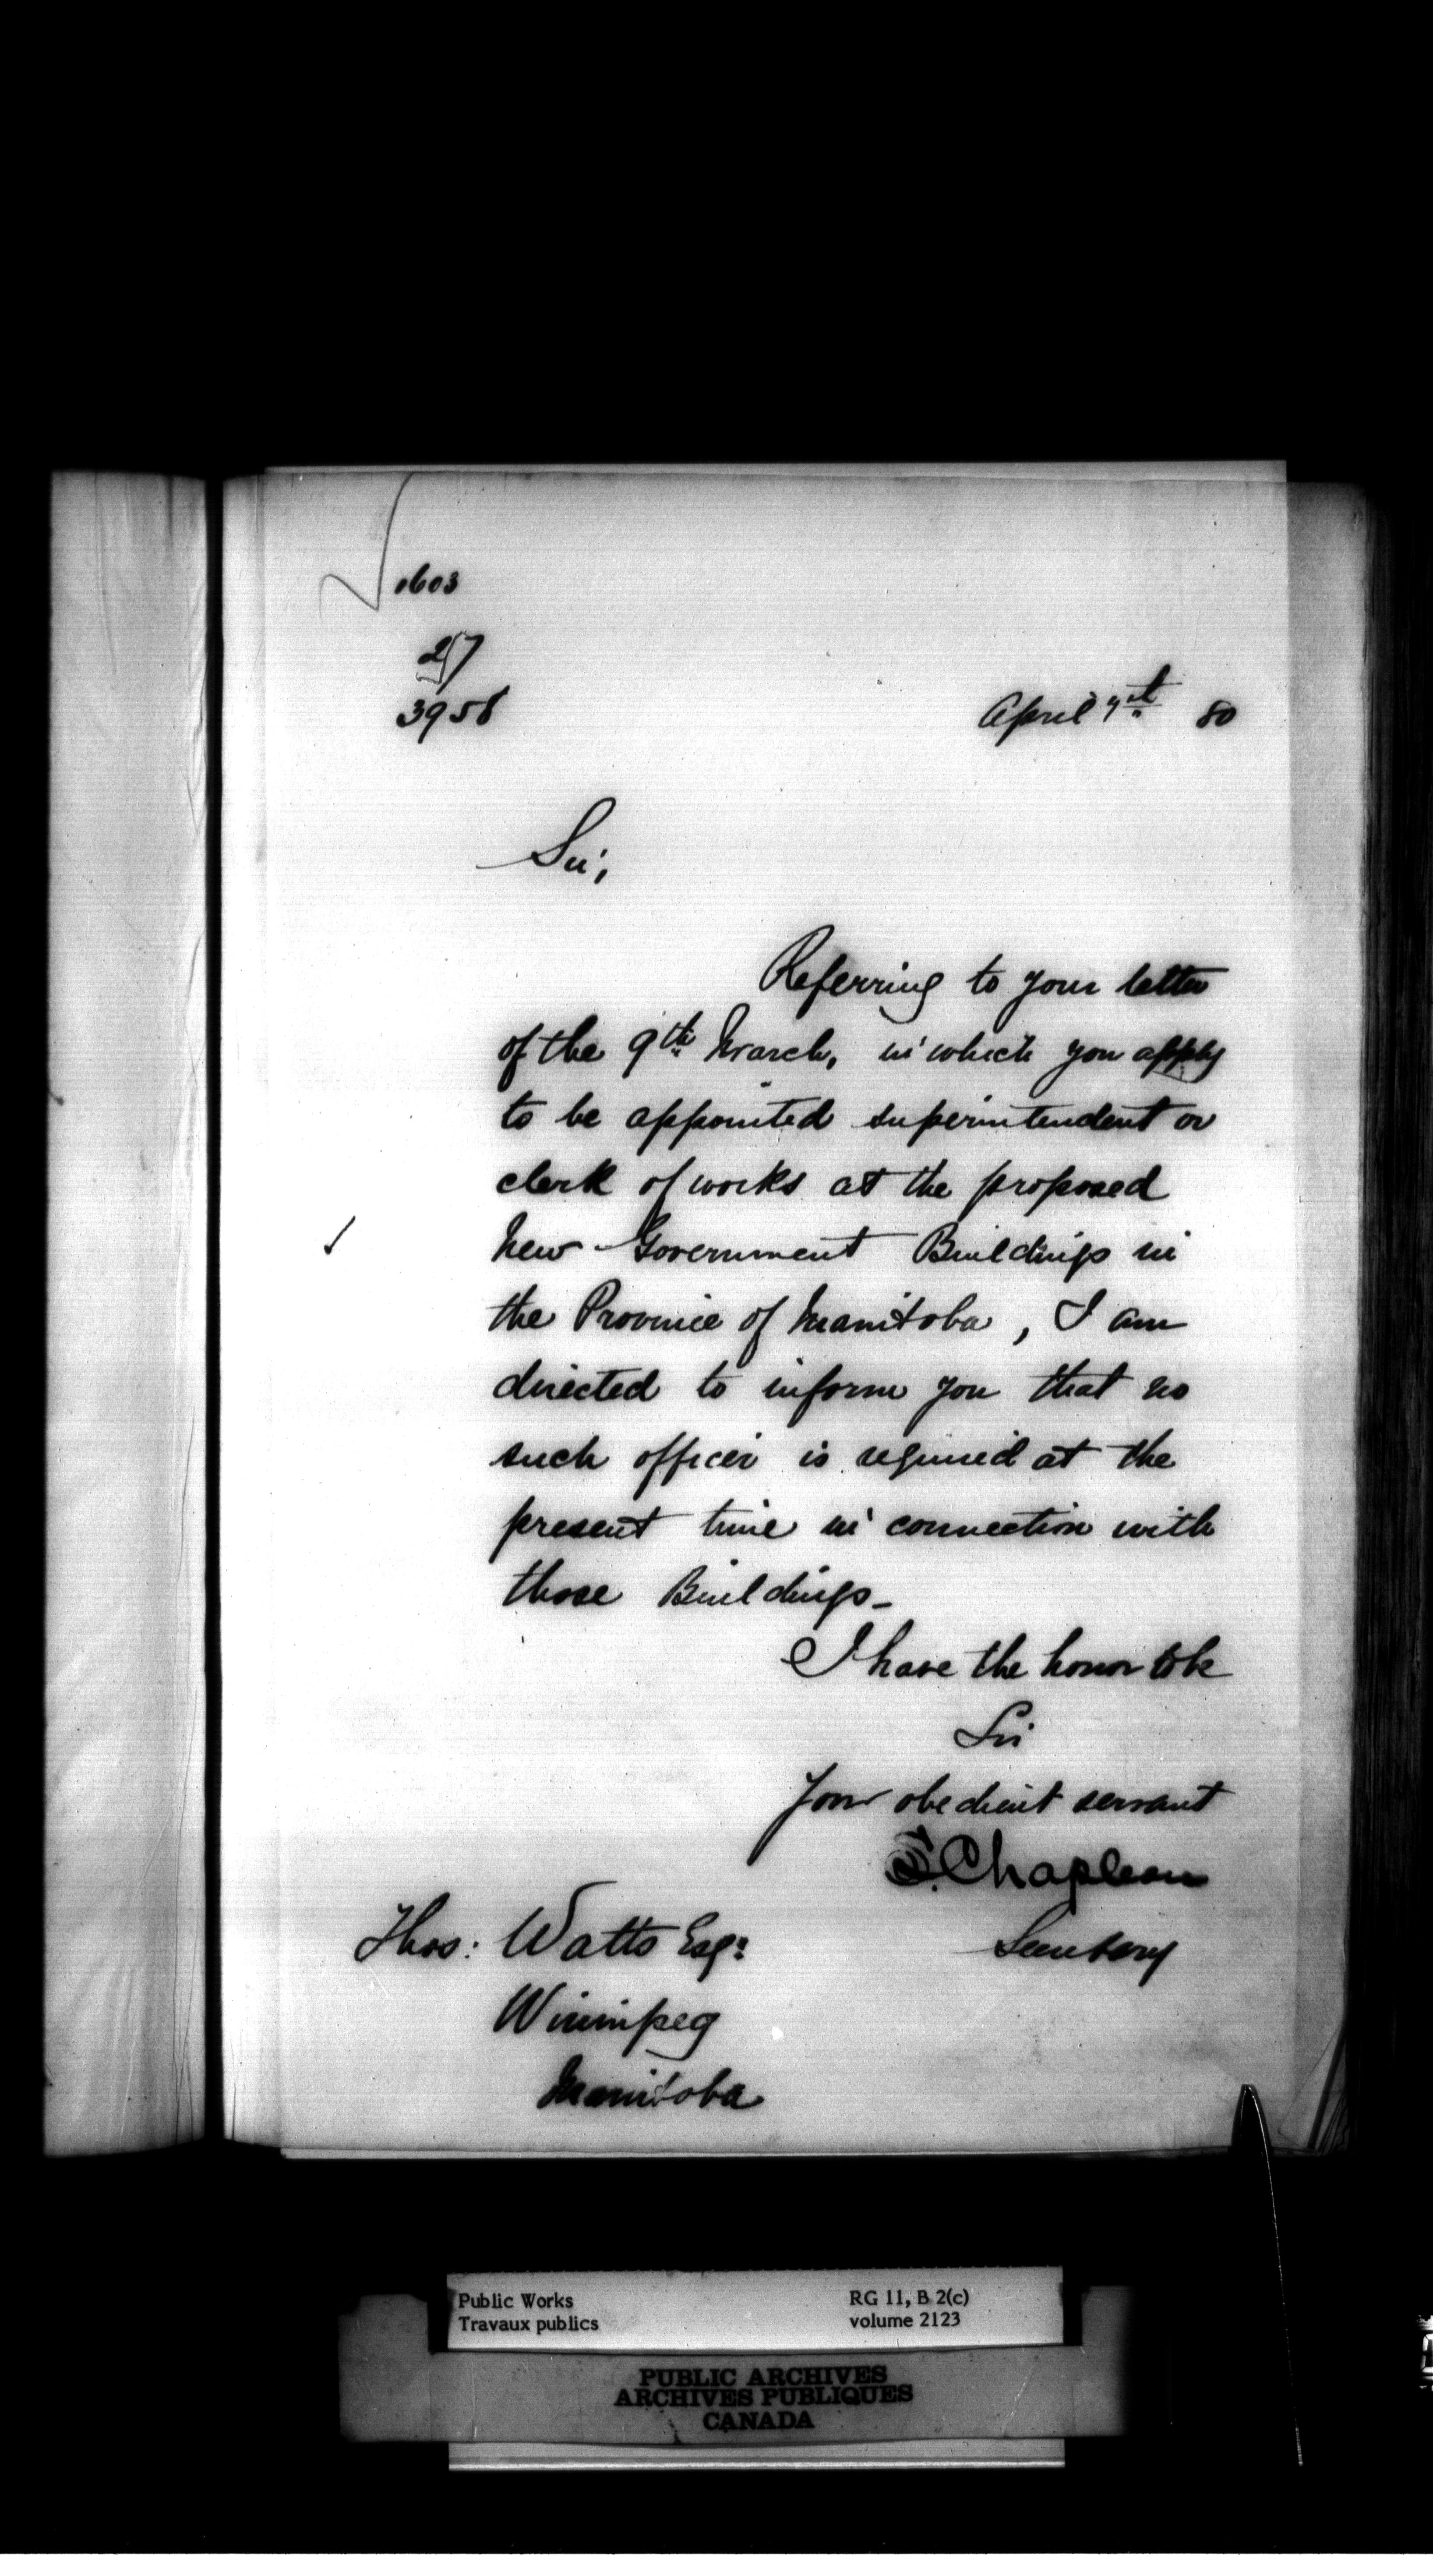 1603
27
3958
April 7th 80
Sir,
Referring to your letter
of the 9th March, in which you apply
to be appointed superintendent or
clerk of works at the proposed
New Government Buildings in
the Province of Manitoba, I am
directed to inform you that no
such officer is required at the
present time in connection with
those Buildings_
I have the honor to be
Sir
Your obedient servant
S. Chapleau
Secretary
Thos: Watts Esq:
Winnipeg
Manitoba
Public Works
Travaux publics
RG 11, B 2(c)
volume 2123
PUBLIC ARCHIVES
ARCHIVES PUBLIQUES
CANADA